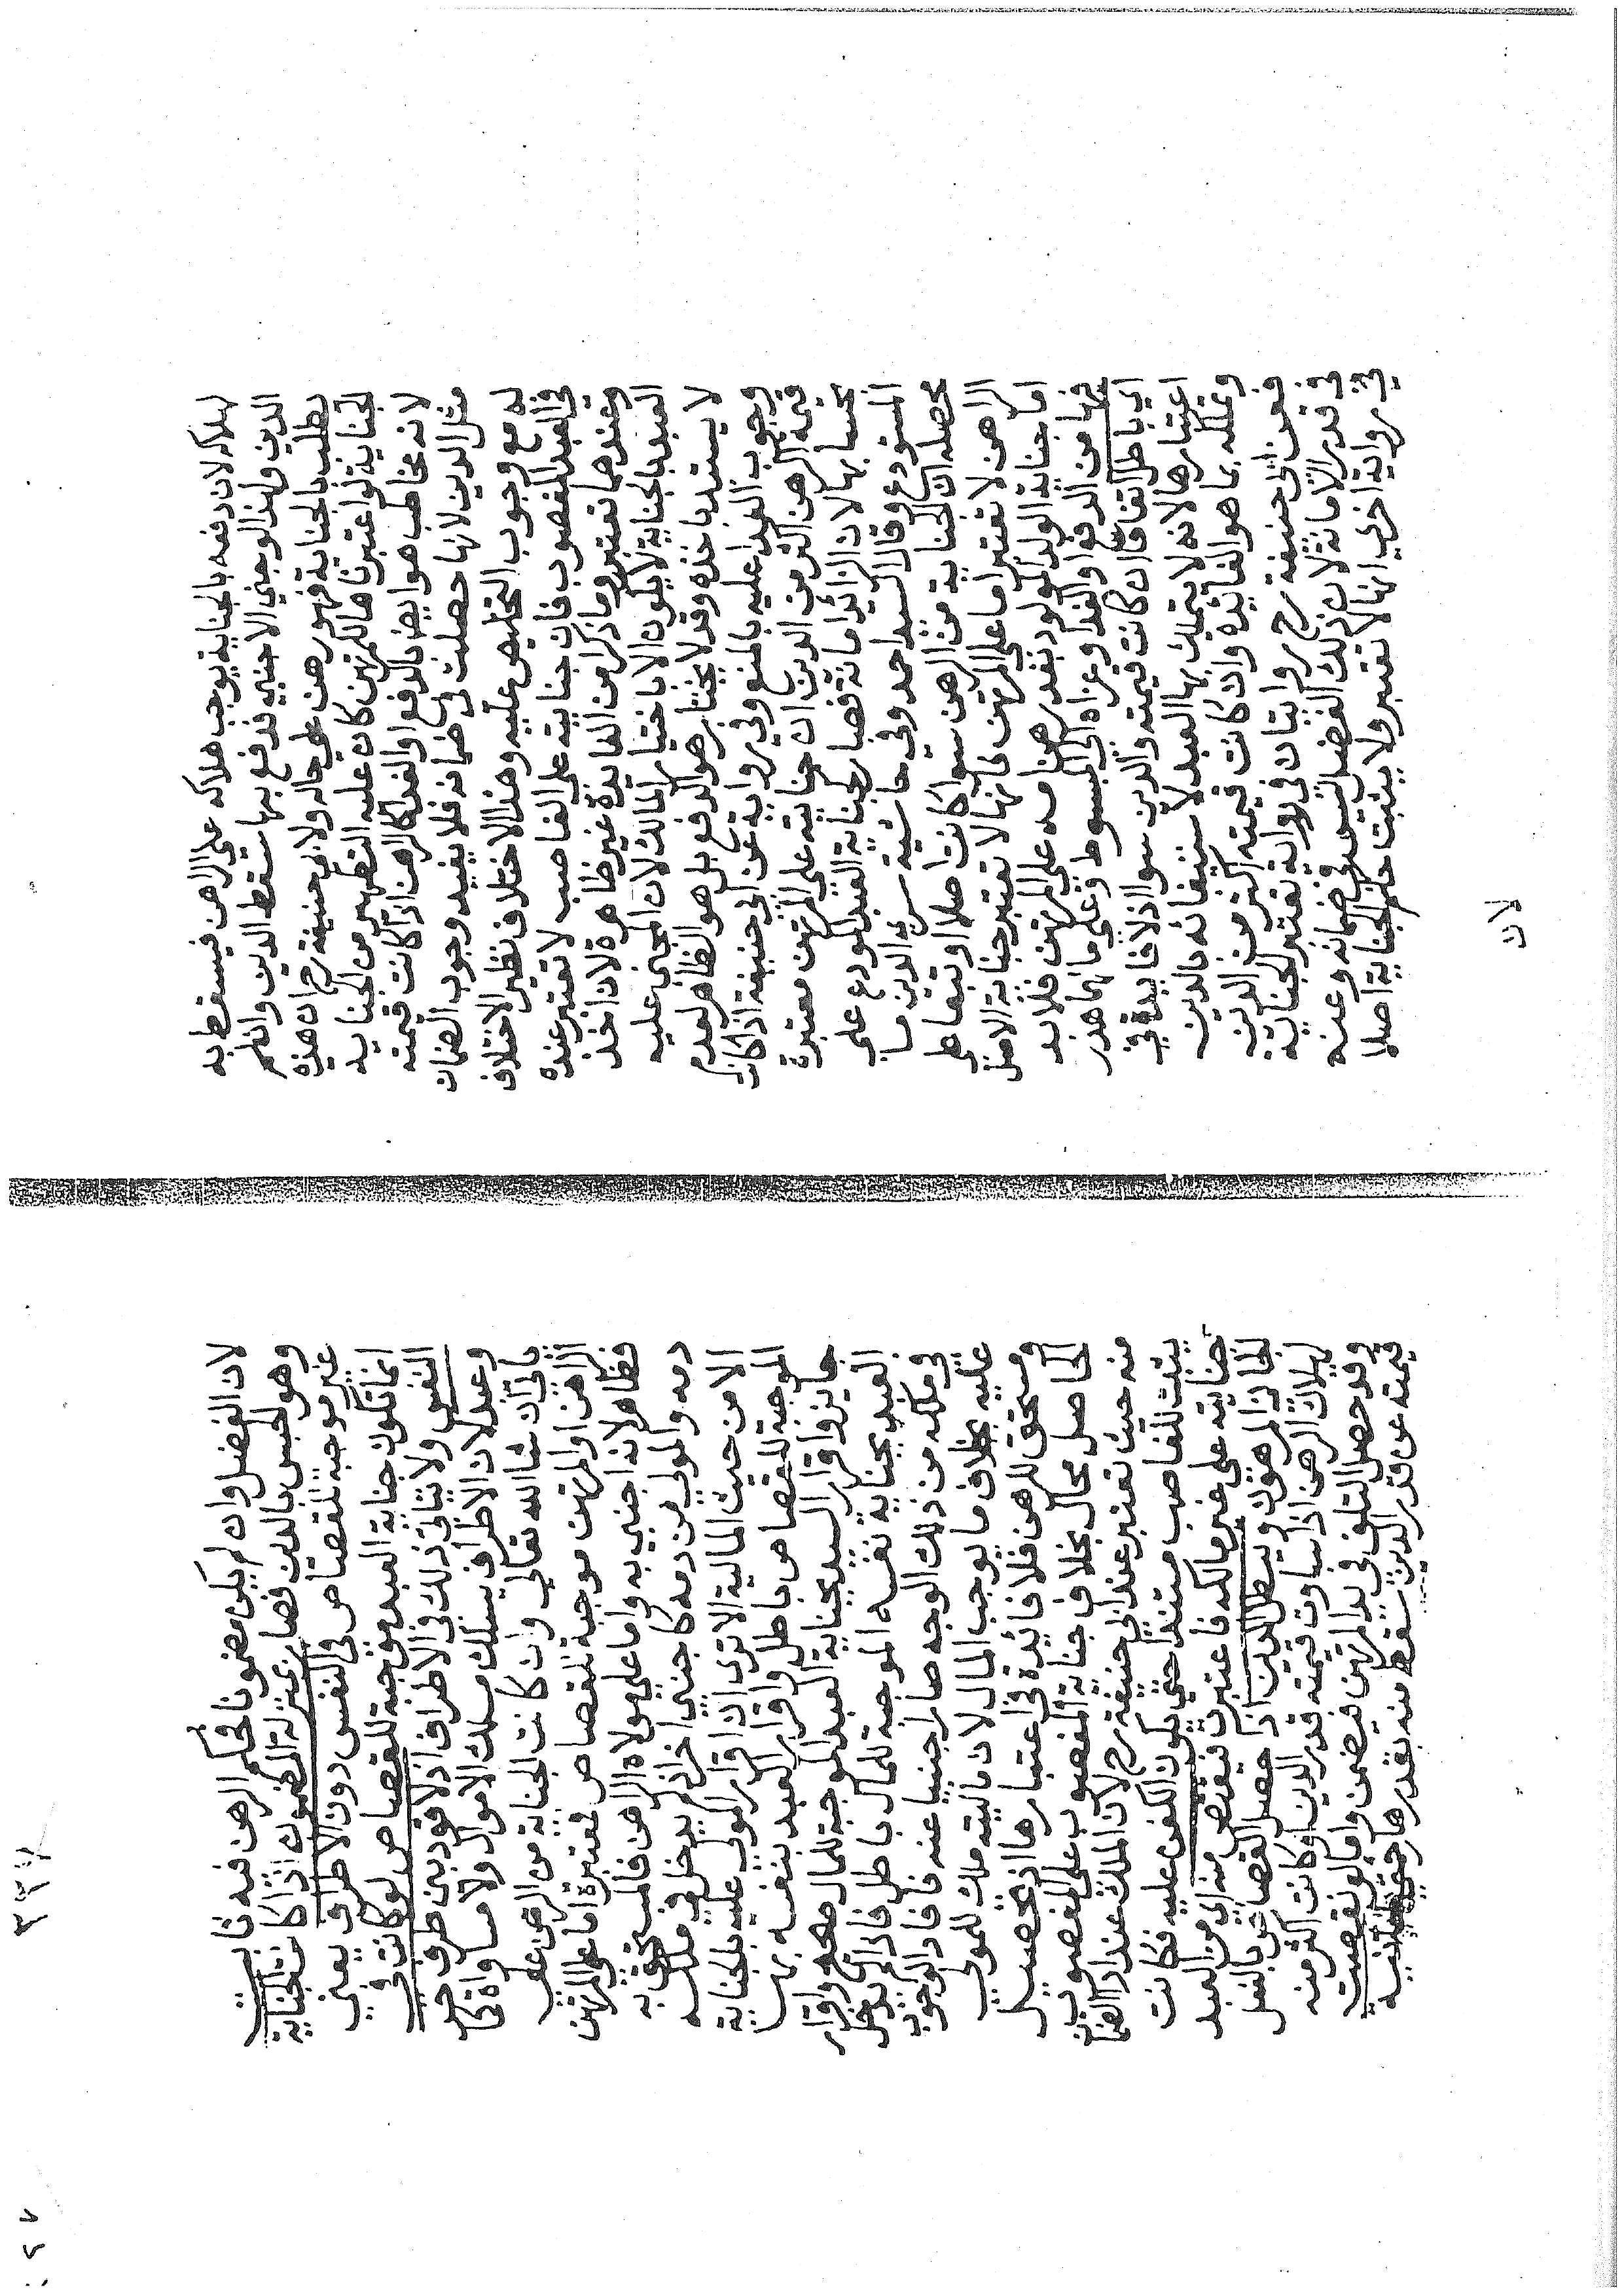 لهلاكه لان دفعه بالجناية يوجب هلاكه علي الراهن فيسقط به
الدين ولهذا لو جني الاجنبي فدفع بها سقط الدين وان لم
يطلب بالجناية فهو رهن علي حاله ولابي حنيفة رح ان هذه
الجناية لو اعتبرناها للمرتهن كان عليه التطهير من الجناية
لانه مخاطب هو ايضا بالدفع او الفدا كالراهن اذا كانت قيمته
مثل الدين لانها حصلت في ضمانه فلا يفيد وجوب الضمان
له مع وجوب التخليص عليه وهذا الاختلاف نظير الاختلاف
في العبد المغصوب فان جنايته علي الغاصب لا تعتبر عنده
وعندهما تعتبر وما ذكرا من الفايدة غير ظاهرة لان اخذ
العبد بالجناية لا يكون الا باختيار المالك لان المجني عليه
لا يستبد باخذه وقد لا يختار هو الدفع بل هو الظاهر لعدم
وجوب الفدا عليه بالمنع وفي رواية عن ابي حنيفة اذا كانت
قيمة الرهن اكثر من الدين ان جنايته علي المرتهن معتبرة
بحسابها لان الزائد امانة فصار كجناية العبد المودع علي
المستودع وقال السيد احمد وفي حاشية سري الدين ما
محصله ان الجناية من الرهن سوا كانت اصلا او تبعا علي
الراهن لا تعتبر اما علي المرتهن فانها لا تعتبر جناية الاصل
اما جناية الولد المولود بعد رهن امه علي المرتهن فلا بد
فيها من الدفع او الفدا وعزاه الي المبسوط وعلي مالهما هدر
اي باطل اتفاقا ان كانت قيمته والدين سوا اذ لا فايدة في
اعتبارها لانه لا يتملك بها العبد لاستيفائه بالدين
وتملكه بما هو الفائدة وان كانت قيمته اكثر من الدين
فعن ابي حنيفة رح روايتان في رواية تعتبر الجناية
في قدر الامانة لان ذلك الفضل ليس في ضمانه وعنه
في رواية اخري انها لا تعتبر ولا يثبت حكم الجناية اصلا
لان
لان الفضل وان لم يكن مضمونا فحكم الرهن فيه ثابت
وهو الحبس بالدين فصار بمنزلة المضمون اذا كانت الجناية
غير موجبة للقصاص في النفس دون الاطراف يعني
انما تكون جناية العبد موجبة للقصاص لو كانت في
النفس ولا يتاتي ذلك في الاطراف اذ لا قود بين طرف حر
وعبد لان الاطراف يسلك مسلك الاموال ولا مساواة كما
ياتي ان شا الله تعالي وان كانت الجناية من الرهن علي
الراهن او المرتهن موجبة للقصاص فمعتبرة اما علي المرتهن
فظاهر لانه اجنبي به واما علي مولاه الراهن فالمستحق به
دمه والمولي من دمه كاجنبي اخر اذ لم يدخل في ملكه
الا من حيث المالية الا تري ان اقرار المولي عليه بالجناية
الموجبة للقصاص باطل واقرار العبد بنفسه بها
جايز واقرار السيد بجناية العبد الموجبة للمال صحيح واقرار
العبد بجناية نفسه الموجبة للمال باطل فاذا لم يدخل
في ملكه من ذلك الوجه صار اجنبيا عنه فافاد الوجوب
عليه بخلاف ما يوجب المال لان ماليته ملك للمولي
ومستحق للرهن فلا فائدة في اعتبارها اذ تحصيل
الحاصل محال بخلاف جناية المغصوب علي المغصوب
منه حيث تعتبر عند ابي حنيفة رح لان الملك عند ادا الضمان
يثبت للغاصب مستندا حتي يكون الكفن عليه فكانت
جنايته علي غير مالكه فاعتبرت فيقتص منه اي من العبد
الجاني المرهون ويبطل الدين اذ حصل القصاص بالفعل
لهلاك الرهن اذا ساوت قيمته قدر الدين او كانت اكثر منه
وقد حصل التلف في يد المرتهن فيضمن واما لو نقصت
قيمته عن قدر الدين سقط منه بقدرها